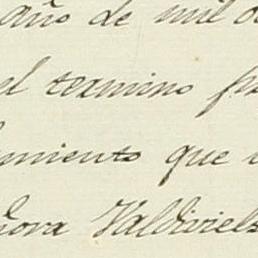 año de mil o
el termino
miento que
ñora Valdiviels